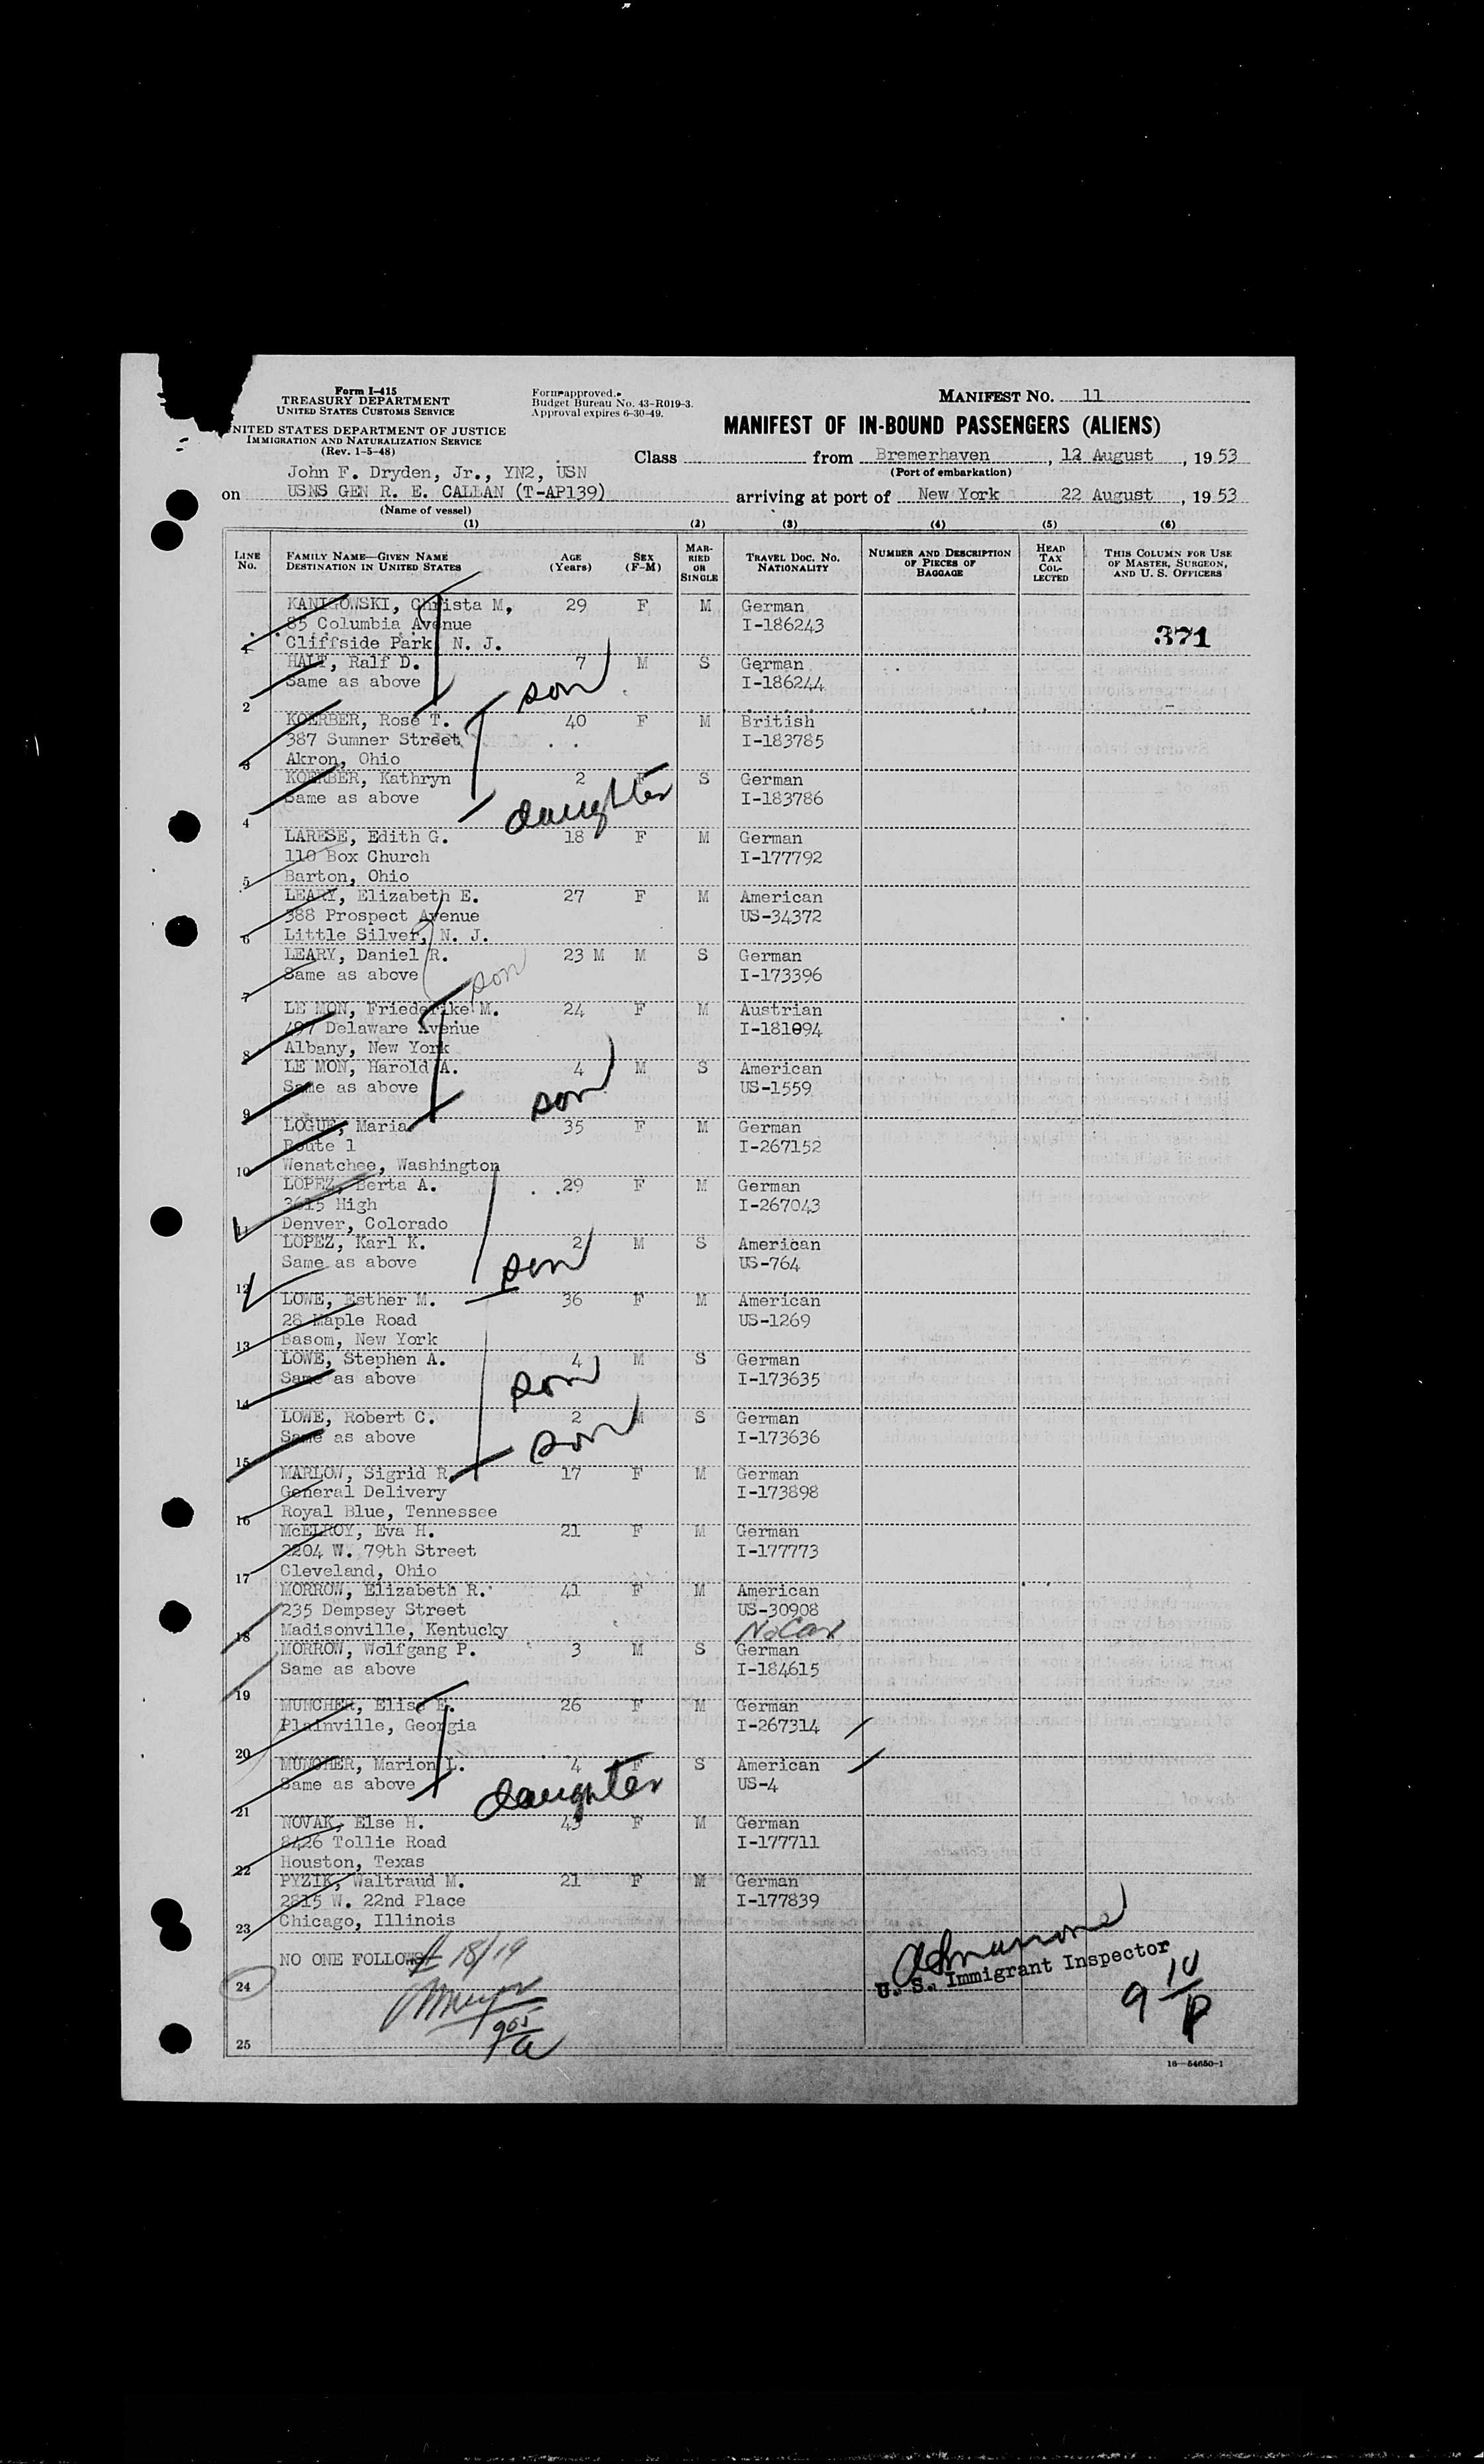 Form I-415
TREASURY DEPARTMENT
UNITED STATES CUSTOMS SERVICE
NITED STATES DEPARTMENT OF JUSTICE
IMMIGRATION AND NATURALIZATION SERVICE
(Rev. 1-5-48)
Form approved.
Budget Bureau No. 43-R019-3.
Approval expires 6-30-49.
MANIFEST NO. 11
MANIFEST OF IN-BOUND PASSENGERS (ALIENS)
Class from Bremerhaven, 12 August, 1953
(Port of embarkation)
John F. Dryden, Jr., YN2, USN
on USNS GEN R. E. CALLAN (T-AP139) arriving at port of New York 22 August, 1953
(Name of vessel)
(1) (2) (3) (4) (5) (6)
LINE No. FAMILY NAME—GIVEN NAME DESTINATION IN UNITED STATES AGE (Years) SEX (F-M) MARRIED OR SINGLE TRAVEL DOC. NO. NATIONALITY NUMBER AND DESCRIPTION OF PIECES OF BAGGAGE HEAD TAX COLLECTED THIS COLUMN FOR USE OF MASTER, SURGEON, AND U. S. OFFICERS
KANIGOWSKI, Christa M, 29 F M German
85 Columbia Avenue I-186243
1 Cliffside Park, N. J. 371
HALT, Ralf D. 7 M S German
Same as above I-186244
2 son
KOERBER, Rose T. 40 F M British
387 Sumner Street I-183785
3 Akron, Ohio
KOERBER, Kathryn 2 F S German
Same as above I-183786
4 daughter
LARESE, Edith G. 18 F M German
110 Box Church I-177792
5 Barton, Ohio
LEARY, Elizabeth E. 27 F M American
388 Prospect Avenue US-34372
6 Little Silver, N. J.
LEARY, Daniel R. 23 M M S German
Same as above I-173396
7 son
LE MON, Friederike M. 24 F M Austrian
497 Delaware Avenue I-181094
8 Albany, New York
LE MON, Harold A. 4 M S American
Same as above US-1559
9 son
LOGUE, Maria 35 F M German
Route 1 I-267152
10 Wenatchee, Washington
LOPEZ, Berta A. 29 F M German
3615 High I-267043
11 Denver, Colorado
LOPEZ, Karl K. 2 M S American
Same as above US-764
12 son
LOWE, Esther M. 36 F M American
28 Maple Road US-1269
13 Basom, New York
LOWE, Stephen A. 4 M S German
Same as above I-173635
14 son
LOWE, Robert C. 2 M S German
Same as above I-173636
15 son
MARLOW, Sigrid R. 17 F M German
General Delivery I-173898
16 Royal Blue, Tennessee
McELROY, Eva H. 21 F M German
2204 W. 79th Street I-177773
17 Cleveland, Ohio
MORROW, Elizabeth R. 41 F M American
235 Dempsey Street US-30908
18 Madisonville, Kentucky
MORROW, Wolfgang P. 3 M S German
Same as above I-184615
19
MUNCHER, Elise E. 26 F M German
Plainville, Georgia I-267314
20
MUNCHER, Marion L. 4 F S American
Same as above US-4
21 daughter
NOVAK, Else H. 43 F M German
8426 Tollie Road I-177711
22 Houston, Texas
PYZIK, Waltraud M. 21 F M German
2815 W. 22nd Place I-177839
23 Chicago, Illinois
NO ONE FOLLOWS 18/19
24
U. S. Immigrant Inspector
9 10/P
905/a
25
16-54650-1